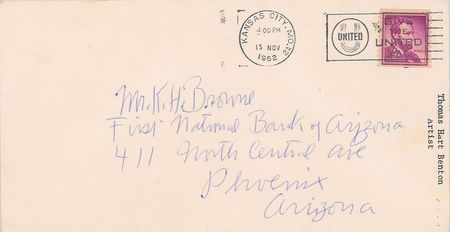 KANSAS CITY, MO.
4:00 PM
15 NOV
1962
UNITED
GIVE
THE
UNITED
WAY
Mr. K. H. Browne
First National Bank of Arizona
411 North Central ave
Phoenix
Arizona
Thomas Hart Benton
Artist